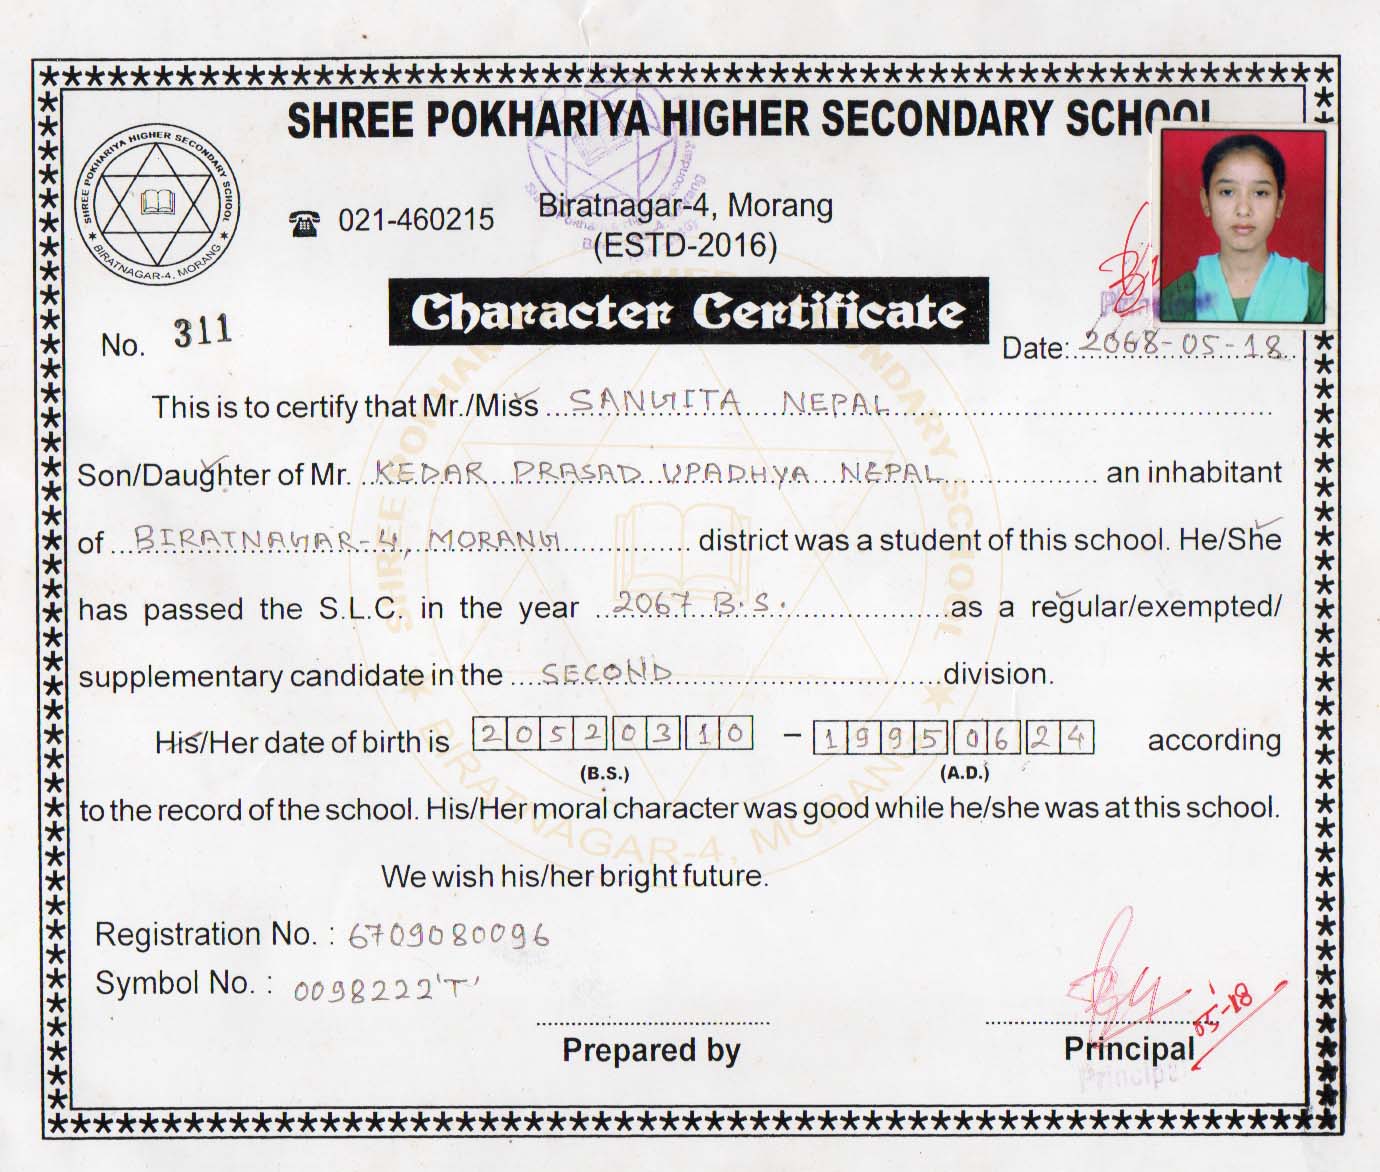 SHREE POKHARIYA HIGHER SECONDARY SCHOOL
SHREE POKHARIYA HIGHER SECONDARY SCHOOL
BIRATNAGAR-4, MORANG
021-460215
Biratnagar-4, Morang
(ESTD-2016)
Character Certificate
No. 311
Date: 2068-05-18
This is to certify that Mr./Miss SANGITA NEPAL
Son/Daughter of Mr. KEDAR PRASAD UPADHYA NEPAL an inhabitant
of BIRATNAGAR-4, MORANG district was a student of this school. He/She
has passed the S.L.C. in the year 2067 B.S. as a regular/exempted/
supplementary candidate in the SECOND division.
His/Her date of birth is 20520310 – 19950624 according
(B.S.) (A.D.)
to the record of the school. His/Her moral character was good while he/she was at this school.
We wish his/her bright future.
Registration No. : 6709080096
Symbol No. : 0098222'T'
05-18
Prepared by
Principal
Principal